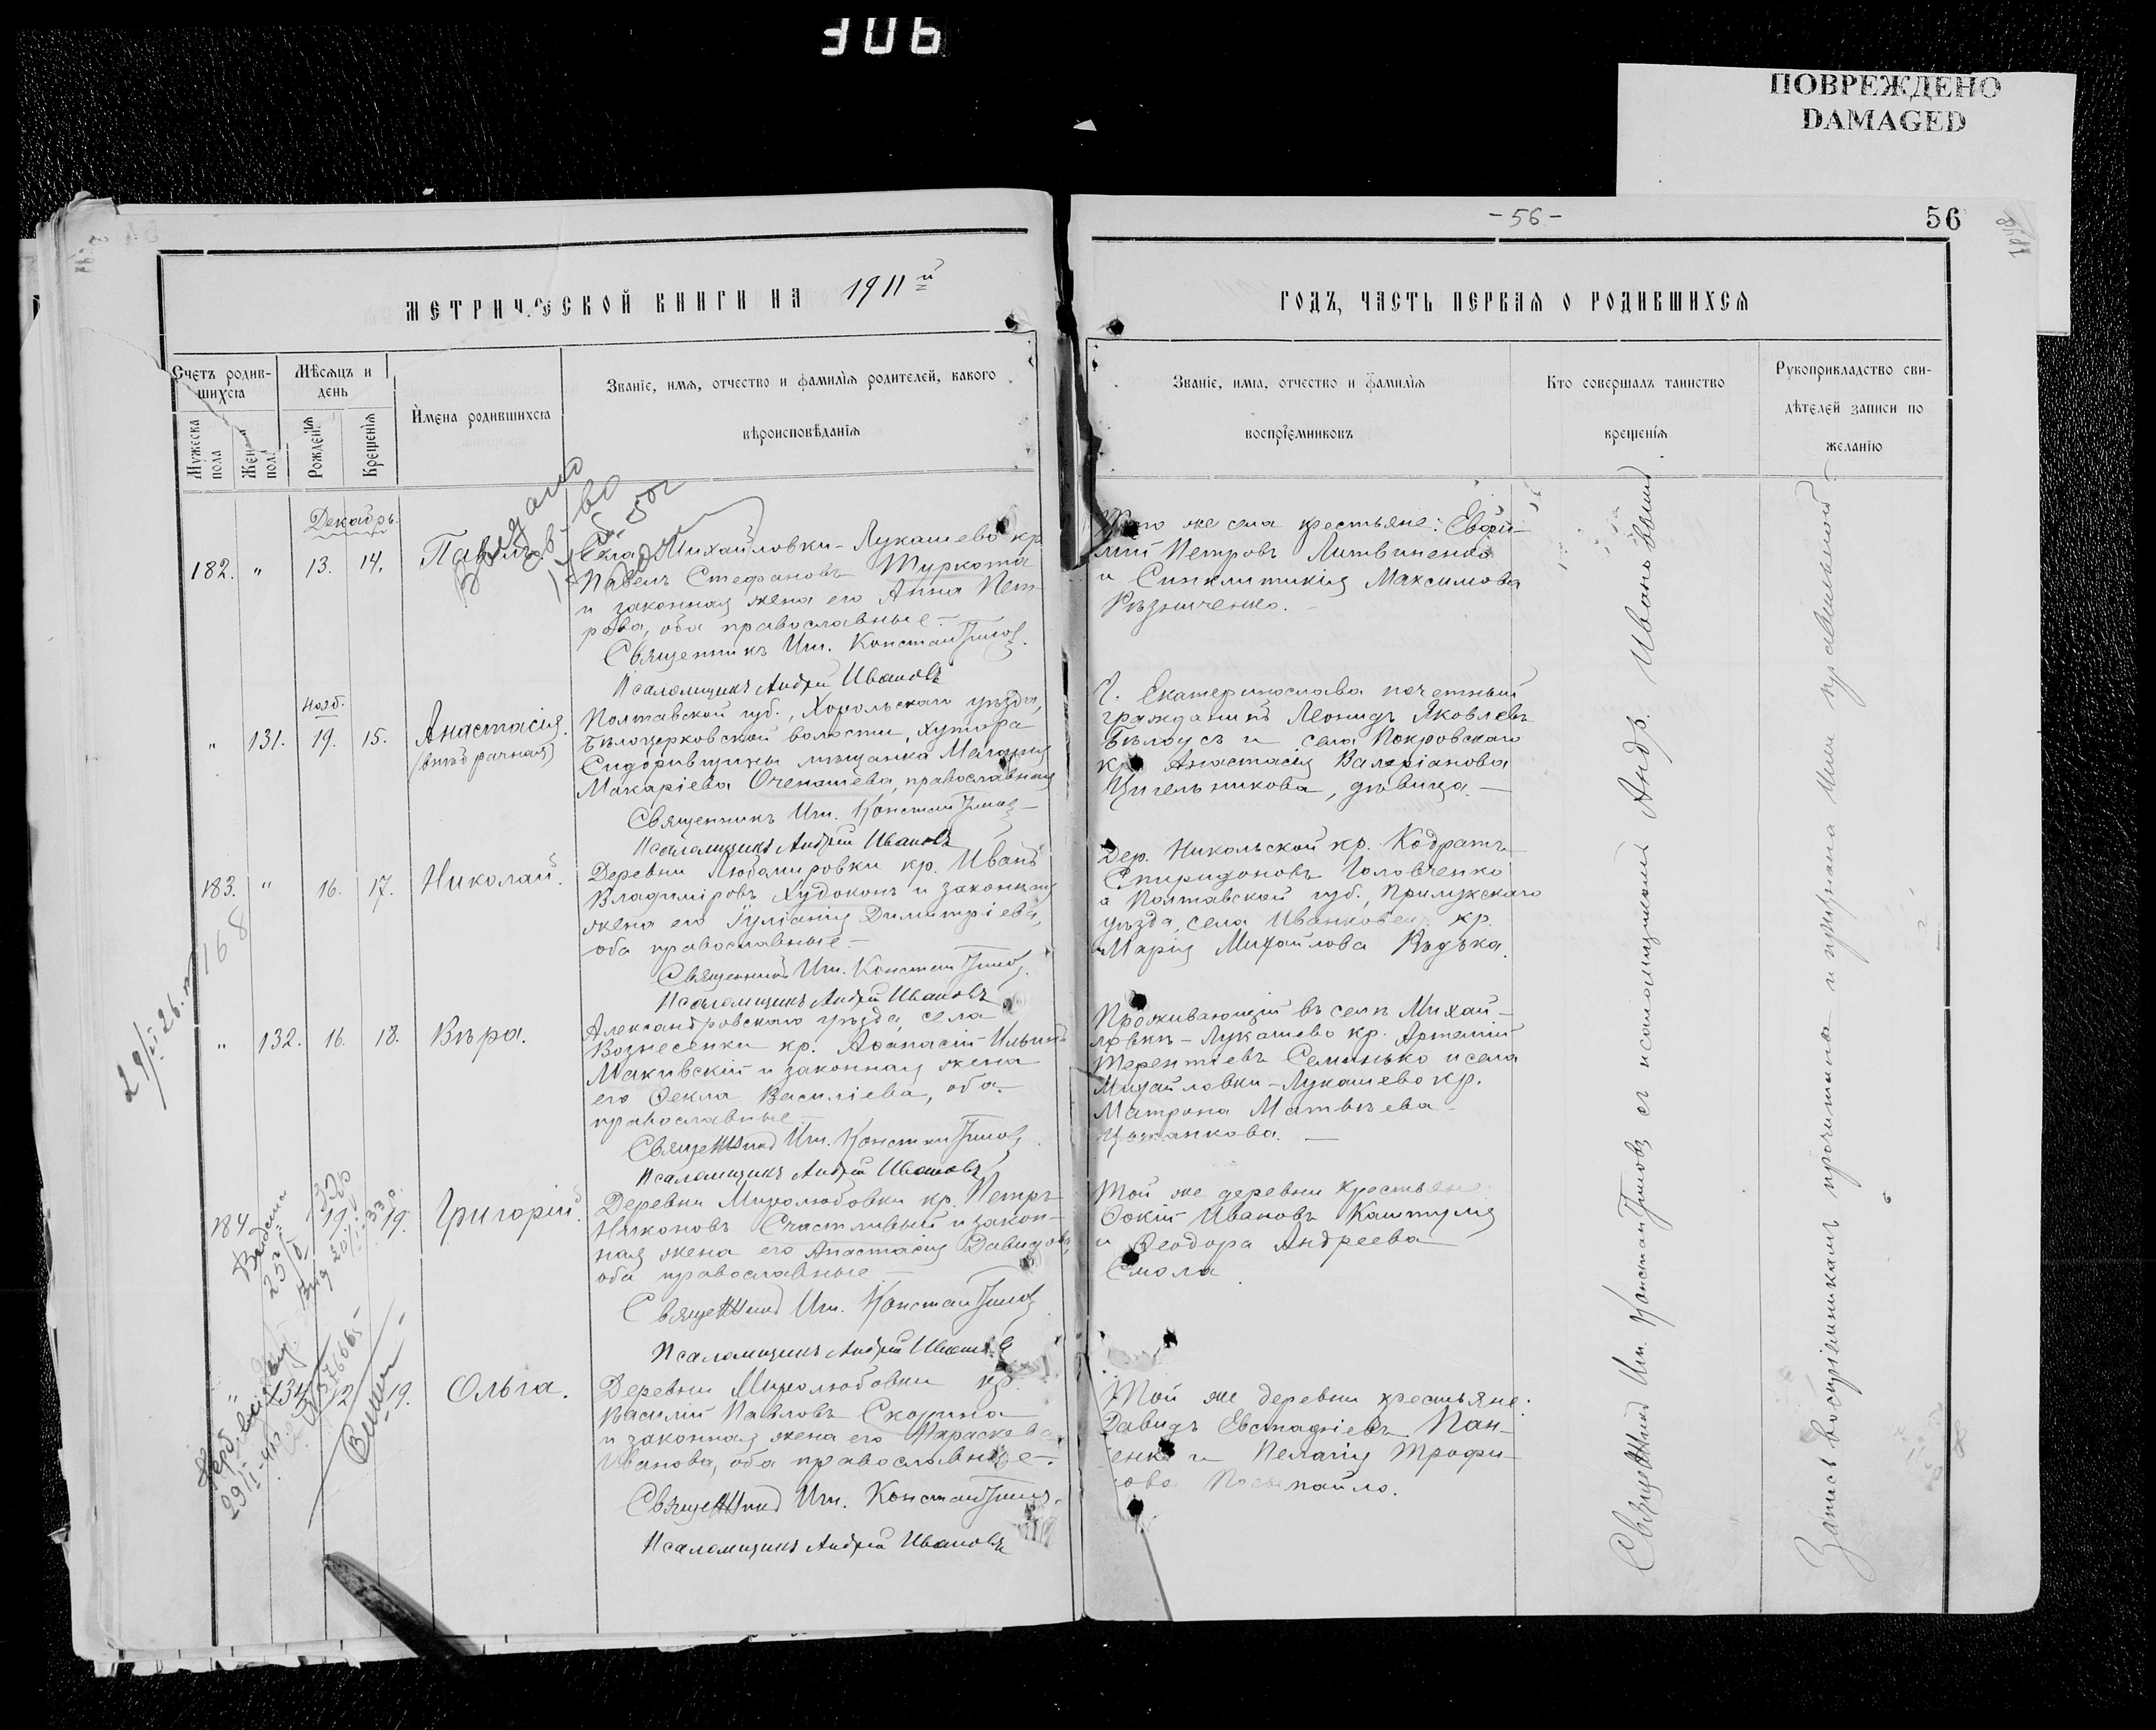 306
ПОВРЕЖДЕНО
DAMAGED
- 56 -
56
МЕТРИЧЕСКОЙ КНИГИ НА 1911й
ГОДЪ, ЧАСТЬ ПЕРВАЯ О РОДИВШИХСЯ
Счетъ родив-
шихся
Мѣсяцъ и
день
Мужеска
пола
Рожденія
Крещенія
Имена родившихся
Званіе, имя, отчество и фамилія родителей, какого
вѣроисповѣданія
Званіе, имя, отчество и фамилія
воспріемниковъ
Кто совершалъ таинство
крещенія
Рукоприкладство сви-
дѣтелей записи по
желанію
Декабрь.
182. " 13. 14. Павелъ.
Села Михайловки-Лукашево кр.
Павелъ Стефановъ Туркота
и законная жена его Анна Пет-
рова, оба православные.-
Священникъ Ип. Константинов
Псаломщикъ Андрей Ивановъ
Того же села крестьяне: Евфи-
мій Петровъ Литвиненко
и Синклитикія Максимова
Рѣзниченко.
Нояб.
" 131. 19. 15. Анастасія.
(внѣбрачная)
Полтавской губ., Хорольскаго уѣзда,
Бѣлоцерковской волости, хутора
мѣщанка Меланія
Макаріева православная
Священникъ Ип. Константинов
Псаломщикъ Андрей Ивановъ
Г. Екатеринослава почетный
гражданинъ Леонидъ Яковлевъ
Бѣлоусъ и села Покровскаго
кр. Анастасія Валеріанова
Цигельникова, дѣвица.-
183. " 16. 17. Николай.
Деревни Любомировки кр. Иванъ
Владиміровъ Худоконь и законная
жена его Іуліанія Димитріева,
оба православные.-
Священникъ Ип. Константинов
Псаломщикъ Андрей Ивановъ
Дер. Никольской кр. Кодратъ
Спиридоновъ Головченко
а Полтавской губ., Прилукскаго
уѣзда, села кр.
Марія Михайлова Рѣдька.
168
" 132. 16. 18. Вѣра.
Александровскаго уѣзда, села
Вознесенки кр. Аѳанасій Ильинъ
Макивскій и законная жена
его Ѳекла Василіева, оба
православные.-
Священникъ Ип. Константинов
Псаломщикъ Андрей Ивановъ
Проживающій въ селѣ Михай-
ловкѣ-Лукашево кр. Артемій
Терентіевъ Семинько и села
Михайловки-Лукашево кр.
Матрона Матвѣева
184 19. 19. Григорій.
Деревни Миролюбовки кр. Петръ
Никоновъ Счастливый и закон-
ная жена его Анастасія Давидова,
оба православные.-
Священникъ Ип. Константинов
Псаломщикъ Андрей Ивановъ
Той же деревни крестьяне:
Ивановъ Каштуля
и Ѳеодора Андреева
Смола
" 134 12 19. Ольга.
Деревни Миролюбовки кр.
Василій Павловъ Скорина
и законная жена его Параскева
Иванова, оба православные.-
Священникъ Ип. Константинов
Псаломщикъ Андрей Ивановъ
Той же деревни крестьяне:
Давидъ Евстафіевъ Пан-
енко и Пелагія Трофи-
мова
Священникъ Ип. Константинов съ псаломщикомъ Андр. Ивановымъ
Запись воспріемникамъ прочитана и признана ими правильной.